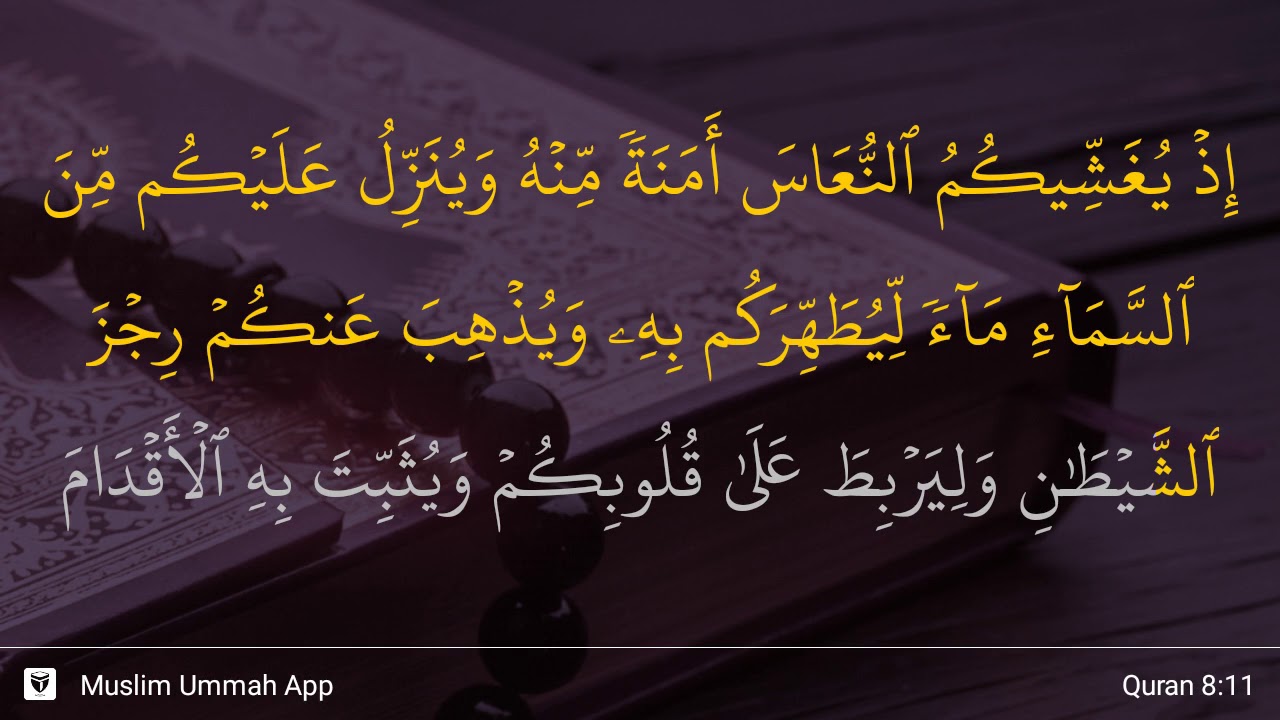 إِذۡ يُغَشِّيكُمُ ٱلنُّعَاسَ أَمَنَةٗ مِّنۡهُ وَيُنَزِّلُ عَلَيۡكُم مِّنَ
ٱلسَّمَآءِ مَآءٗ لِّيُطَهِّرَكُم بِهِۦ وَيُذۡهِبَ عَنكُمۡ رِجۡزَ
ٱلشَّيۡطَٰنِ وَلِيَرۡبِطَ عَلَىٰ قُلُوبِكُمۡ وَيُثَبِّتَ بِهِ ٱلۡأَقۡدَامَ
Muslim Ummah App
Quran 8:11